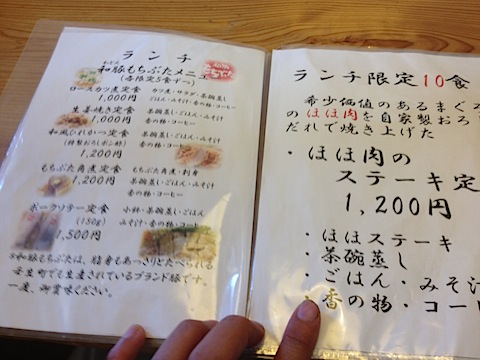 ランチ
和豚もちぶたメニュー
(各限定5食ずつ)
ロースカツ煮定食
1,000円
カツ煮・サラダ・茶碗蒸し
ごはん・みそ汁・香の物・コーヒー
生姜焼き定食
1,000円
茶碗蒸し・ごはん・みそ汁
香の物・コーヒー
和風ひれかつ定食
(特製おろしポン酢)
1,200円
茶碗蒸し・ごはん・みそ汁
香の物・コーヒー
もちぶた角煮定食
1,200円
もちぶた角煮・刺身
茶碗蒸し・ごはん・みそ汁
香の物・コーヒー
ポークソテー定食
(150g)
1,500円
小鉢・茶碗蒸し・ごはん
みそ汁・香の物・コーヒー
※和豚もちぶたは、脂身もあっさりとたべられる
壬生町でも生産されているブランド豚です。
一度、御賞味ください。
ランチ限定10食
希少価値のあるまぐろ
のほほ肉を自家製おろし
だれで焼き上げた
・ほほ肉の
ステーキ定
1,200円
・ほほステーキ
・茶碗蒸し
・ごはん・みそ汁
・香の物・コーヒ